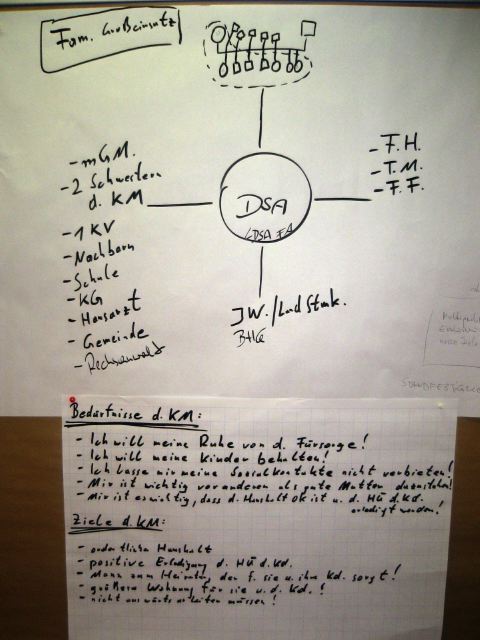 Fam. Großeinsatz
- mGM.
- 2 Schwestern
d. KM
- 1 KV
- Nachbarn
- Schule
- KG
- Hausarzt
- Gemeinde
- Rechtsanwalt
DSA
LDSA FA
- F.H.
- T.M.
- F.F.
JW./Land Stmk.
BHG
Bedürfnisse d. KM:
- Ich will meine Ruhe von d. Fürsorge!
- Ich will meine Kinder behalten!
- Ich lasse mir meine Sozialkontakte nicht verbieten!
- Mir ist wichtig vor anderen als gute Mutter dazustehen!
- Mir ist es wichtig, dass d. Haushalt OK ist u. d. HÜ d. Kd.
erledigt werden!
Ziele d. KM:
- ordentlicher Haushalt
- positive Erledigung d. HÜ d. Kd.
- Mann zum Heiraten, der f. sie u. ihre Kd. sorgt!
- größere Wohnung für sie u. d. Kd.!
- nicht auswärts arbeiten müssen!